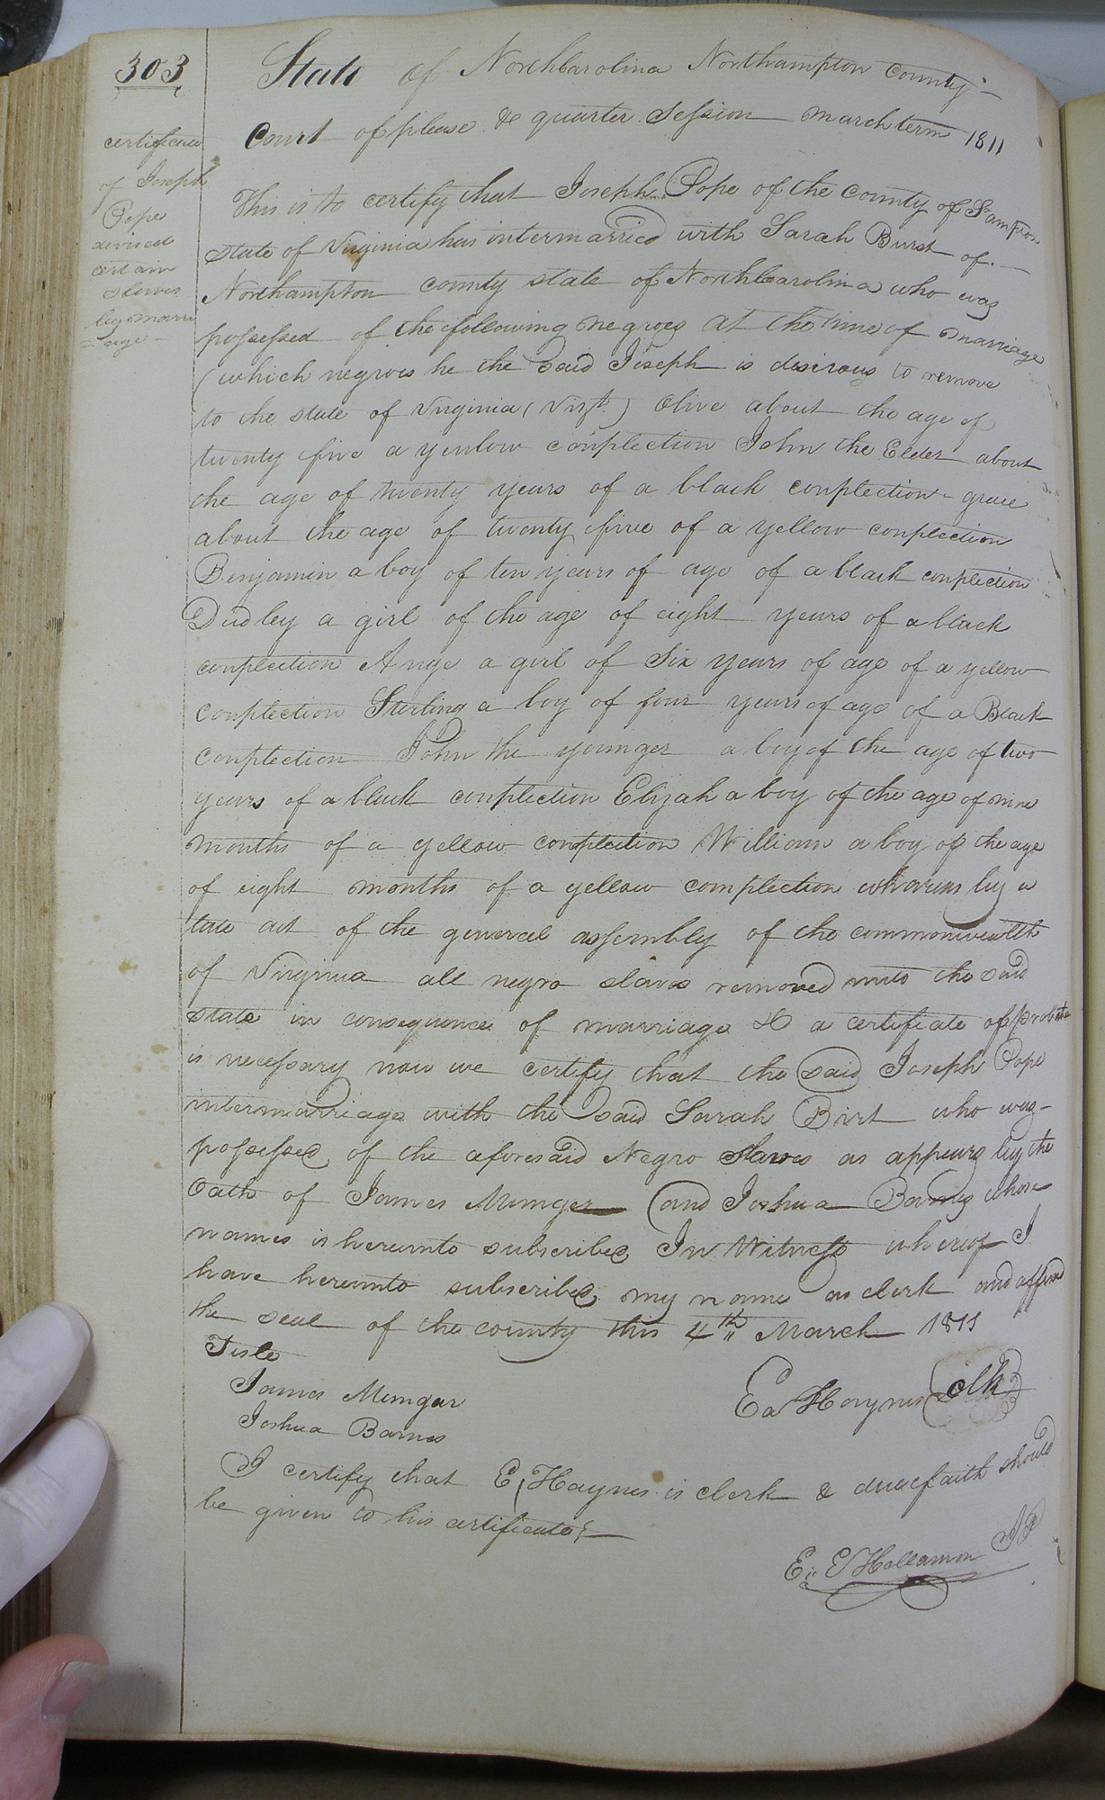 303
State of NorthCarolina Northampton County
Court of please & quarter Session march term 1811
certificate
of Joseph
Pope
devised
certain
slaves
by marri
= age -
This is to certify that Joseph Pope of the county of S.ampton
state of Virginia has intermarried with Sarah Burst of
Northampton county state of NorthCarolina who was
possessed of the following negroes at the time of marriage
(which negroes he the said Joseph is desirous to remove
to the state of Virginia (Vizt.) Olive about the age of
twenty five a yenlow conplection John the Elder about
the age of twenty years of a black conplection - grace
about the age of twenty five of a yellow conplection
Benjamin a boy of ten years of age of a black conplection
Dudley a girl of the age of eight years of a black
conplection Ange a girl of six years of age of a yellow
conplection Sterling a boy of four years of age of a Black
conplection John the younger a boy of the age of two
years of a black conplection Elizah a boy of the age of nine
months of a yellow conplection William a boy of the age
of eight months of a yellow complection whereas by a
late act of the general assembly of the commonwealth
of Virginia all negro slaves removed unto the said
state in consequence of marriage & a certificate of
is necessary now we certify that the said Joseph Pope
intermarriage with the said Sarah Birt who was
possessed of the aforesaid Negro slaves as appears by the
Oath of James Munger (and Joshua Barnes whose
names is hereunto subscribed In Witness whereof I
have hereunto subscribed my name as clerk and affixed
the seal of the county this 4th March 1811
Teste
James Mungar
Joshua Barnes
Ea Haynes clk
I certify that E, Haynes is clerk & due faith should
be given to his certificate
E: E Hallamon JP